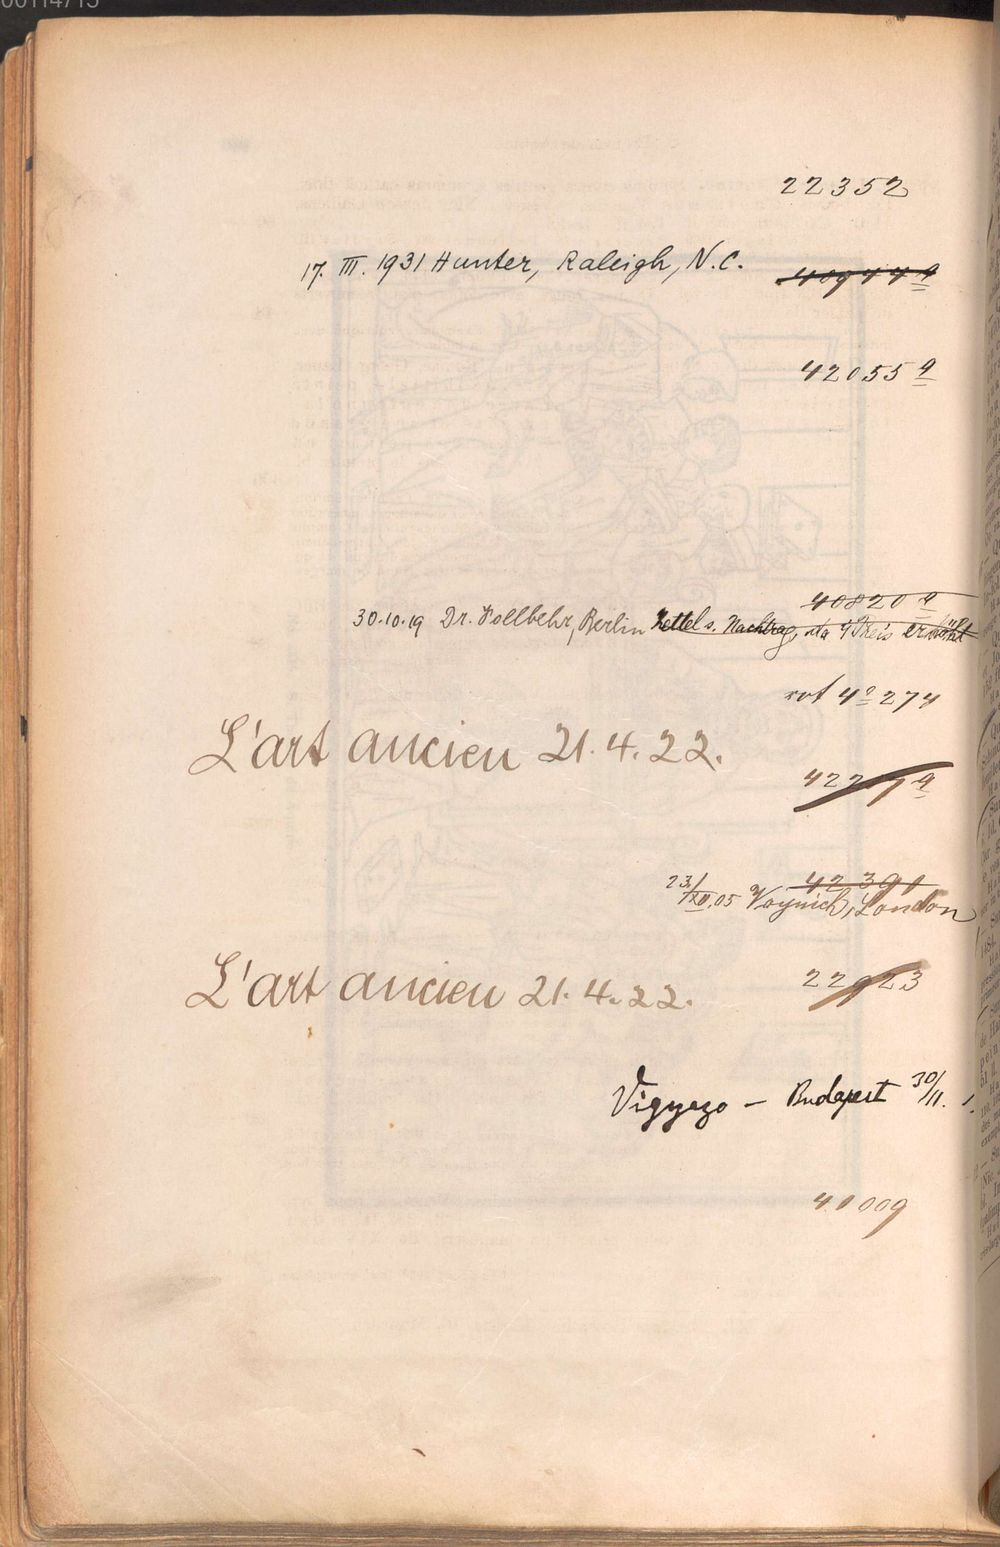 00114715
22352
17. III. 1931 Hunter, Raleigh, N.C. 40944 a
42055 a
40820 a
30.10.19 Dr. Vollbehr, Berlin Zettel s. Nachtrag, da Preis erhöht
rot 4° 274
L'art ancien 21.4.22.
23/XII.05 Voynich, London
42390
L'art ancien 21.4.22. 22923
Vigyazo – Budapest 30/11.
41009